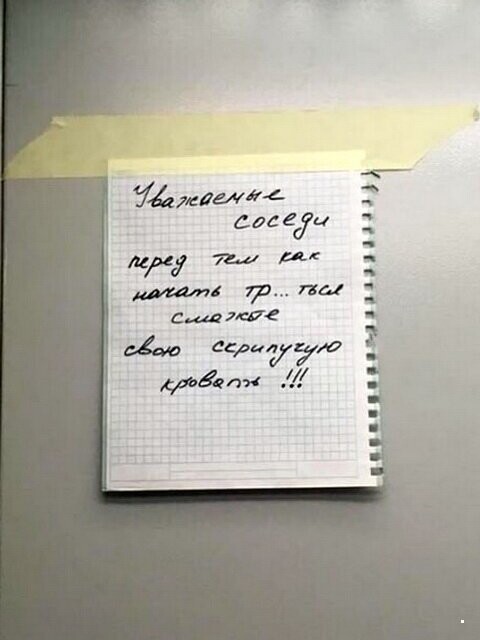 Уважаемые
соседи
перед тем как
начать тр...ться
смажьте
свою скрипучую
кровать !!!